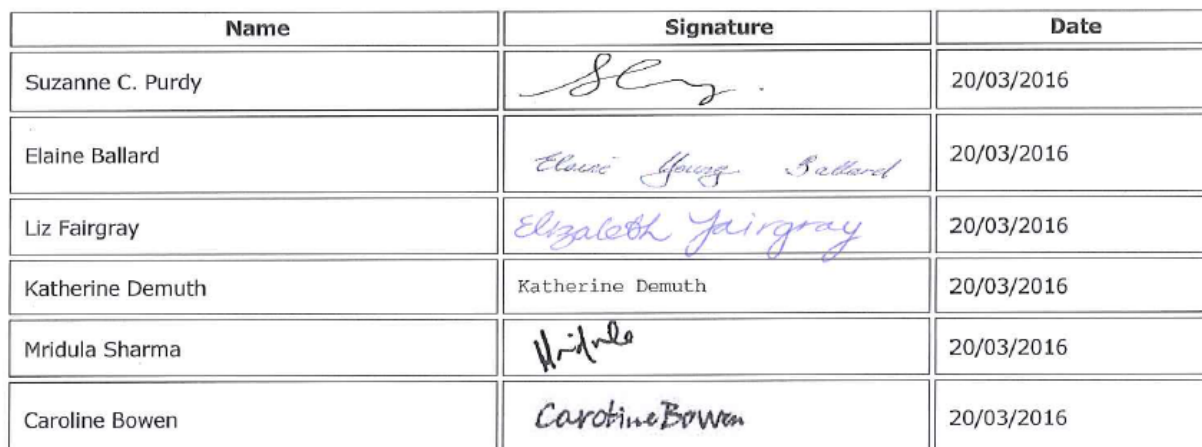 Name Signature Date
Suzanne C. Purdy 20/03/2016
Elaine Ballard Elaine Young Ballard 20/03/2016
Liz Fairgray Elizabeth Fairgray 20/03/2016
Katherine Demuth Katherine Demuth 20/03/2016
Mridula Sharma Mridula 20/03/2016
Caroline Bowen Caroline Bowen 20/03/2016